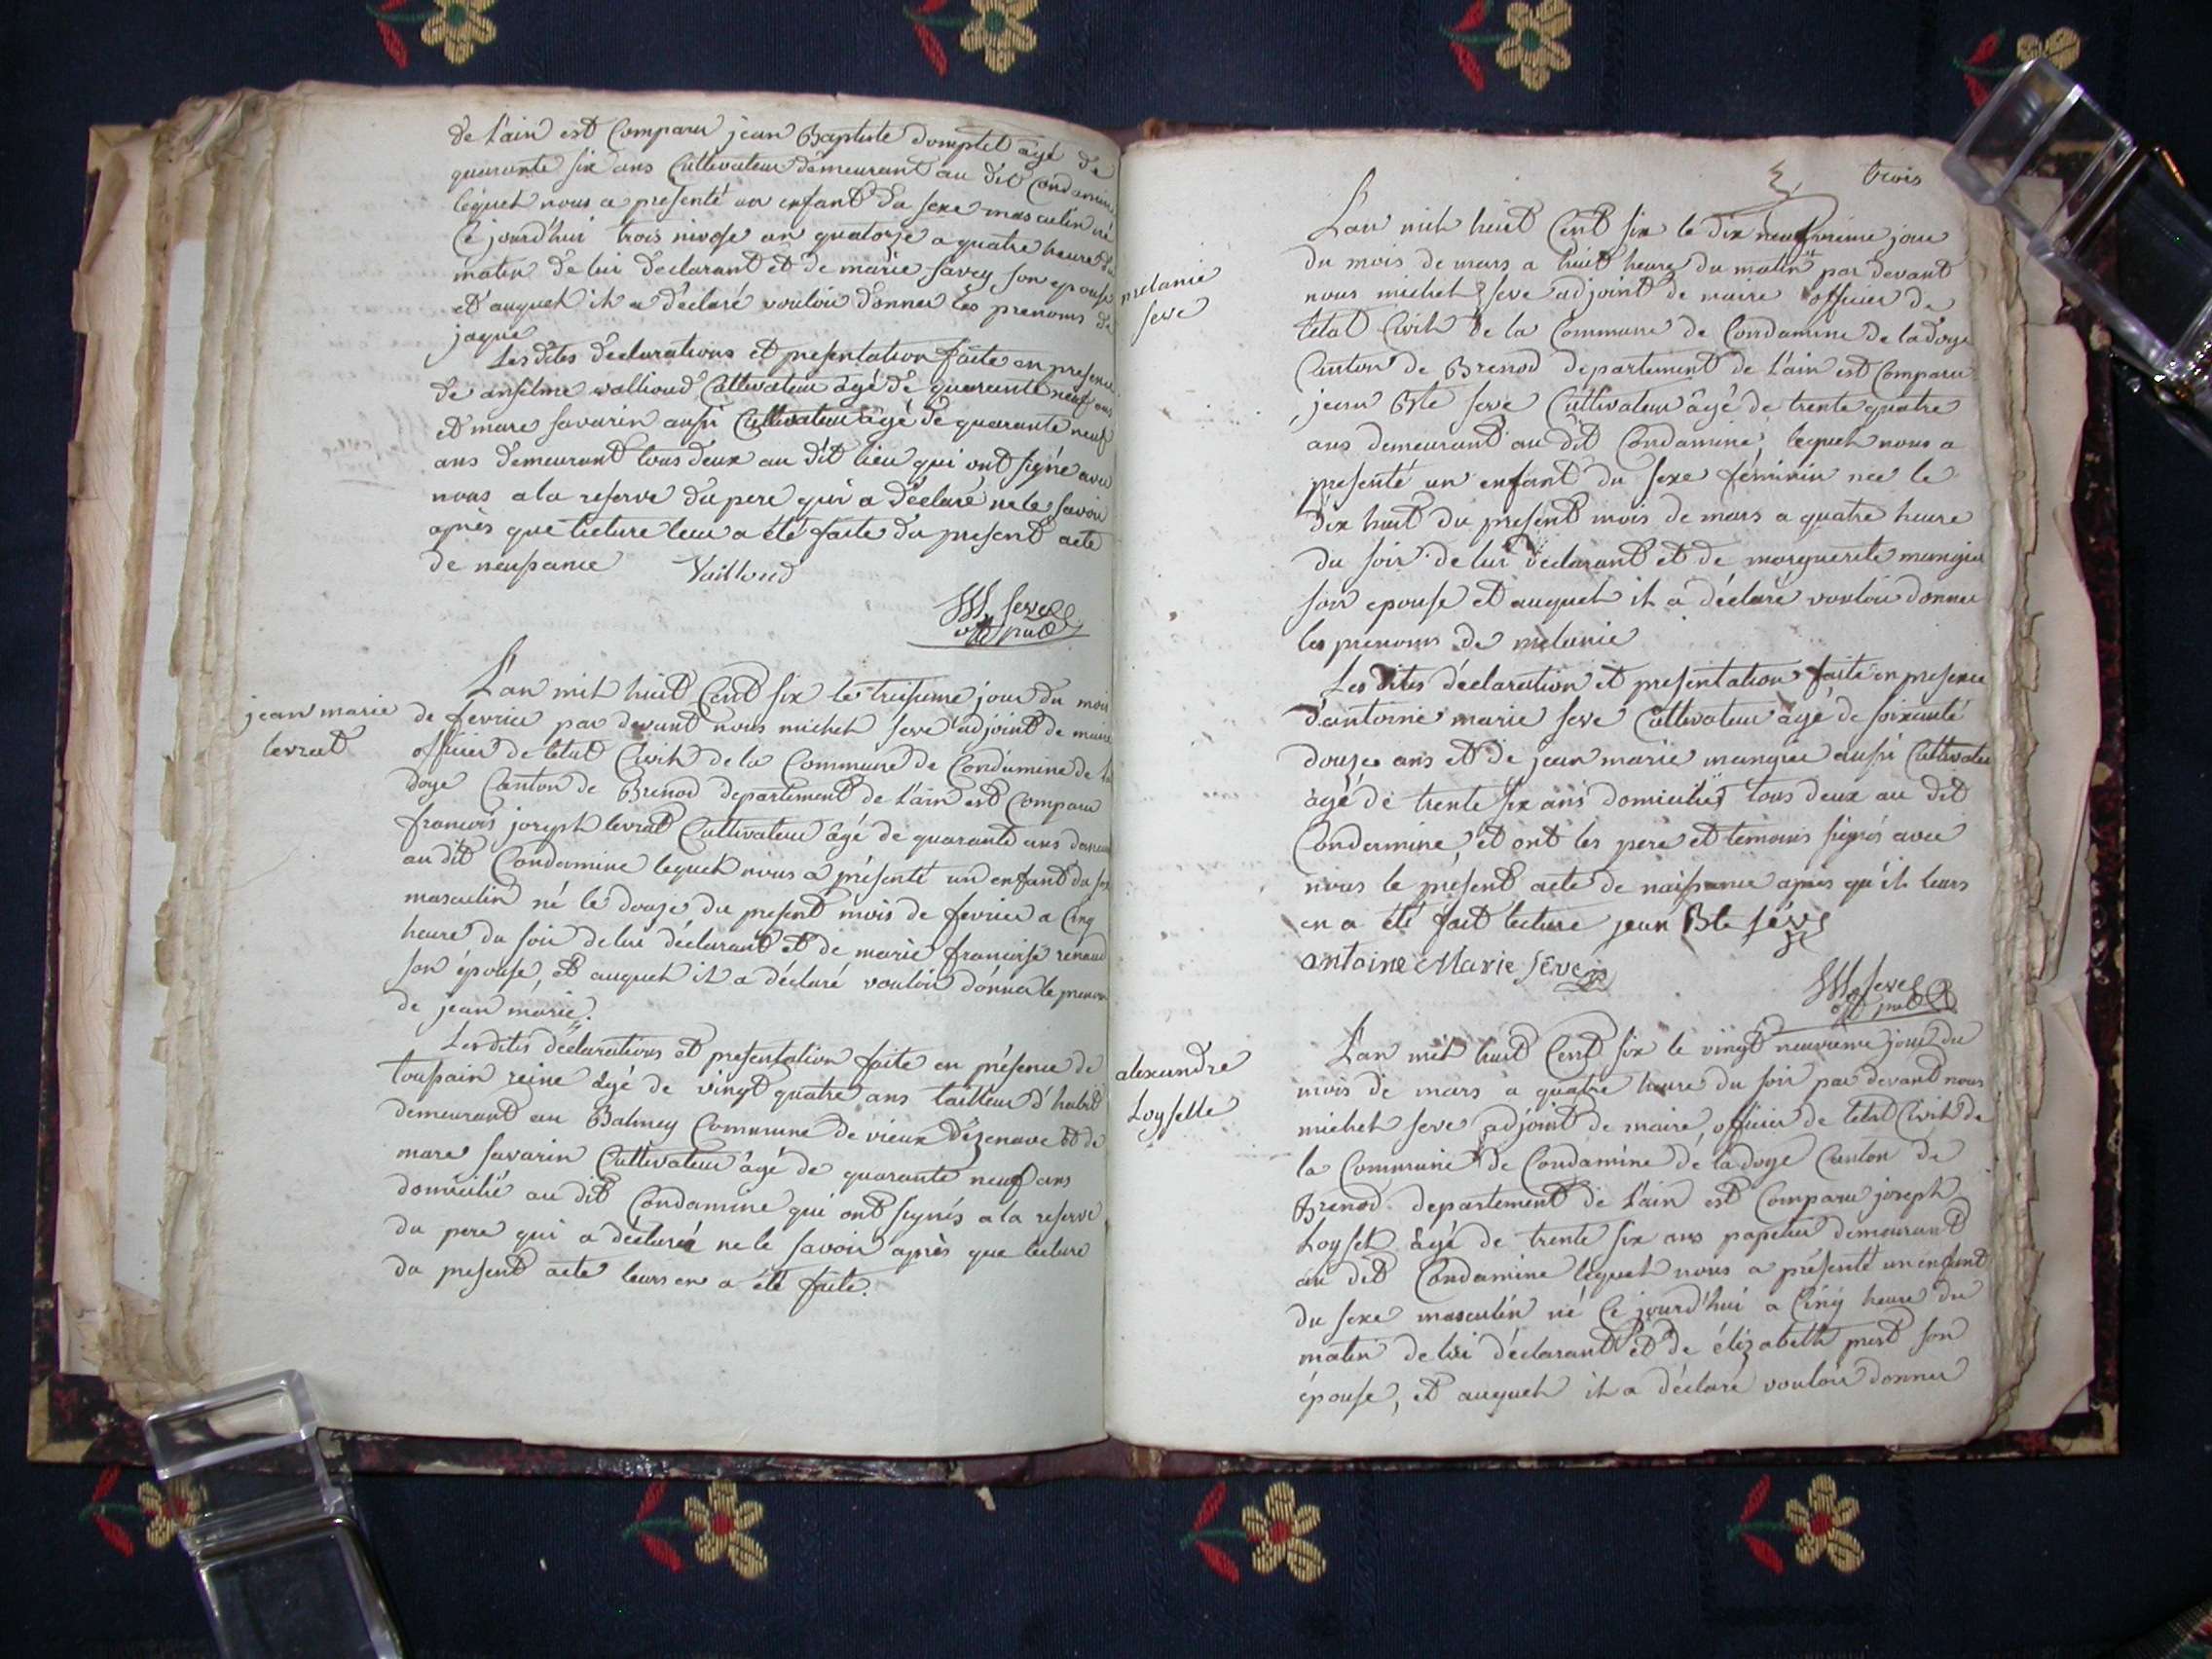 de l'ain est Comparu jean Baptiste domptet âgé de
quarante six ans Cultivateur demeurant au dit Condamine
lequel nous a presenté un enfant du sexe masculin né
Ce jourd'hui trois nivose an quatorze a quatre heure du
matin de lui declarant et de marie savey son epouse
et auquel il a déclaré vouloir donner les prenoms de
jaque
Les dites declarations et presentation faite en presence
de anselme vallioud Cultivateur âgé de quarante neuf ans
et marc savarin aussi Cultivateur âgé de quarante neuf
ans demeurant tous deux au dit lieu qui ont signé avec
nous a la reserve du pere qui a déclaré ne le savoir
après que lecture leur a été faite du present acte
de naissance Vailloud
M. seve
off. pub.
jean marie
levrat
L'an mil huit Cent six le treisieme jour du mois
de fevrier par devant nous michel seve adjoint de maire
officier de letat Civil de la Commune de Condamine de la
doye Canton de Brenod departement de l'ain est Comparu
francois joseph levrat Cultivateur âgé de quarante ans
au dit Condamine lequel nous a présenté un enfant du sexe
masculin né le douze du present mois de fevrier a Cinq
heure du soir de lui déclarant et de marie francoise renaud
son épouse, et auquel il a déclaré vouloir donner le prenom
de jean marie.
Les dites déclarations et presentation faite en présence de
toussain reine âgé de vingt quatre ans tailleur d'habit
demeurant au Balmey Commune de vieux d'izenave et de
marc savarin Cultivateur âgé de quarante neuf ans
domicilié au dit Condamine qui ont signés a la reserve
du pere qui a déclaré ne le savoir après que lecture
du present acte leurs en a été faite.
trois
melanie
seve
L'an mil huit Cent six le dix neufvieme jour
du mois de mars a huit heure du matin par devant
nous michel seve adjoint de maire officier de
letat Civil de la Commune de Condamine de ladoye
Canton de Brenod departement de l'ain est Comparu
jean Bte seve Cultivateur âgé de trente quatre
ans demeurant au dit Condamine lequel nous a
presenté un enfant du sexe féminin née le
dix huit du present mois de mars a quatre heure
du soir de lui declarant et de marguerite mangier
son epouse et auquel il a déclaré vouloir donner
les prenoms de melanie
Les dites déclaration et presentation faite en presence
d'antoine marie seve Cultivateur âgé de soixante
douze ans et de jean marie mangier aussi Cultivateur
âgé de trente six ans domiciliés tous deux au dit
Condamine, et ont les pere et temoins signés avec
nous le présent acte de naissance apres qu'il leurs
en a été fait lecture jean Bte séve
antoine Marie seve
M. seve
off. pub.
alexandre
Loyselle
L'an mil huit Cent six le vingt neuvieme jour du
mois de mars a quatre heure du soir par devant nous
michel seve adjoint de maire, officier de letat Civil de
la Commune de Condamine de ladoye Canton de
Brenod departement de l'ain est Comparu joseph
Loysel âgé de trente six ans papetier demeurant
au dit Condamine lequel nous a présenté un enfant
du sexe masculin né Ce jourd'hui a Cinq heure du
matin de lui déclarant et de élizabeth prost son
épouse, et auquel il a déclaré vouloir donner